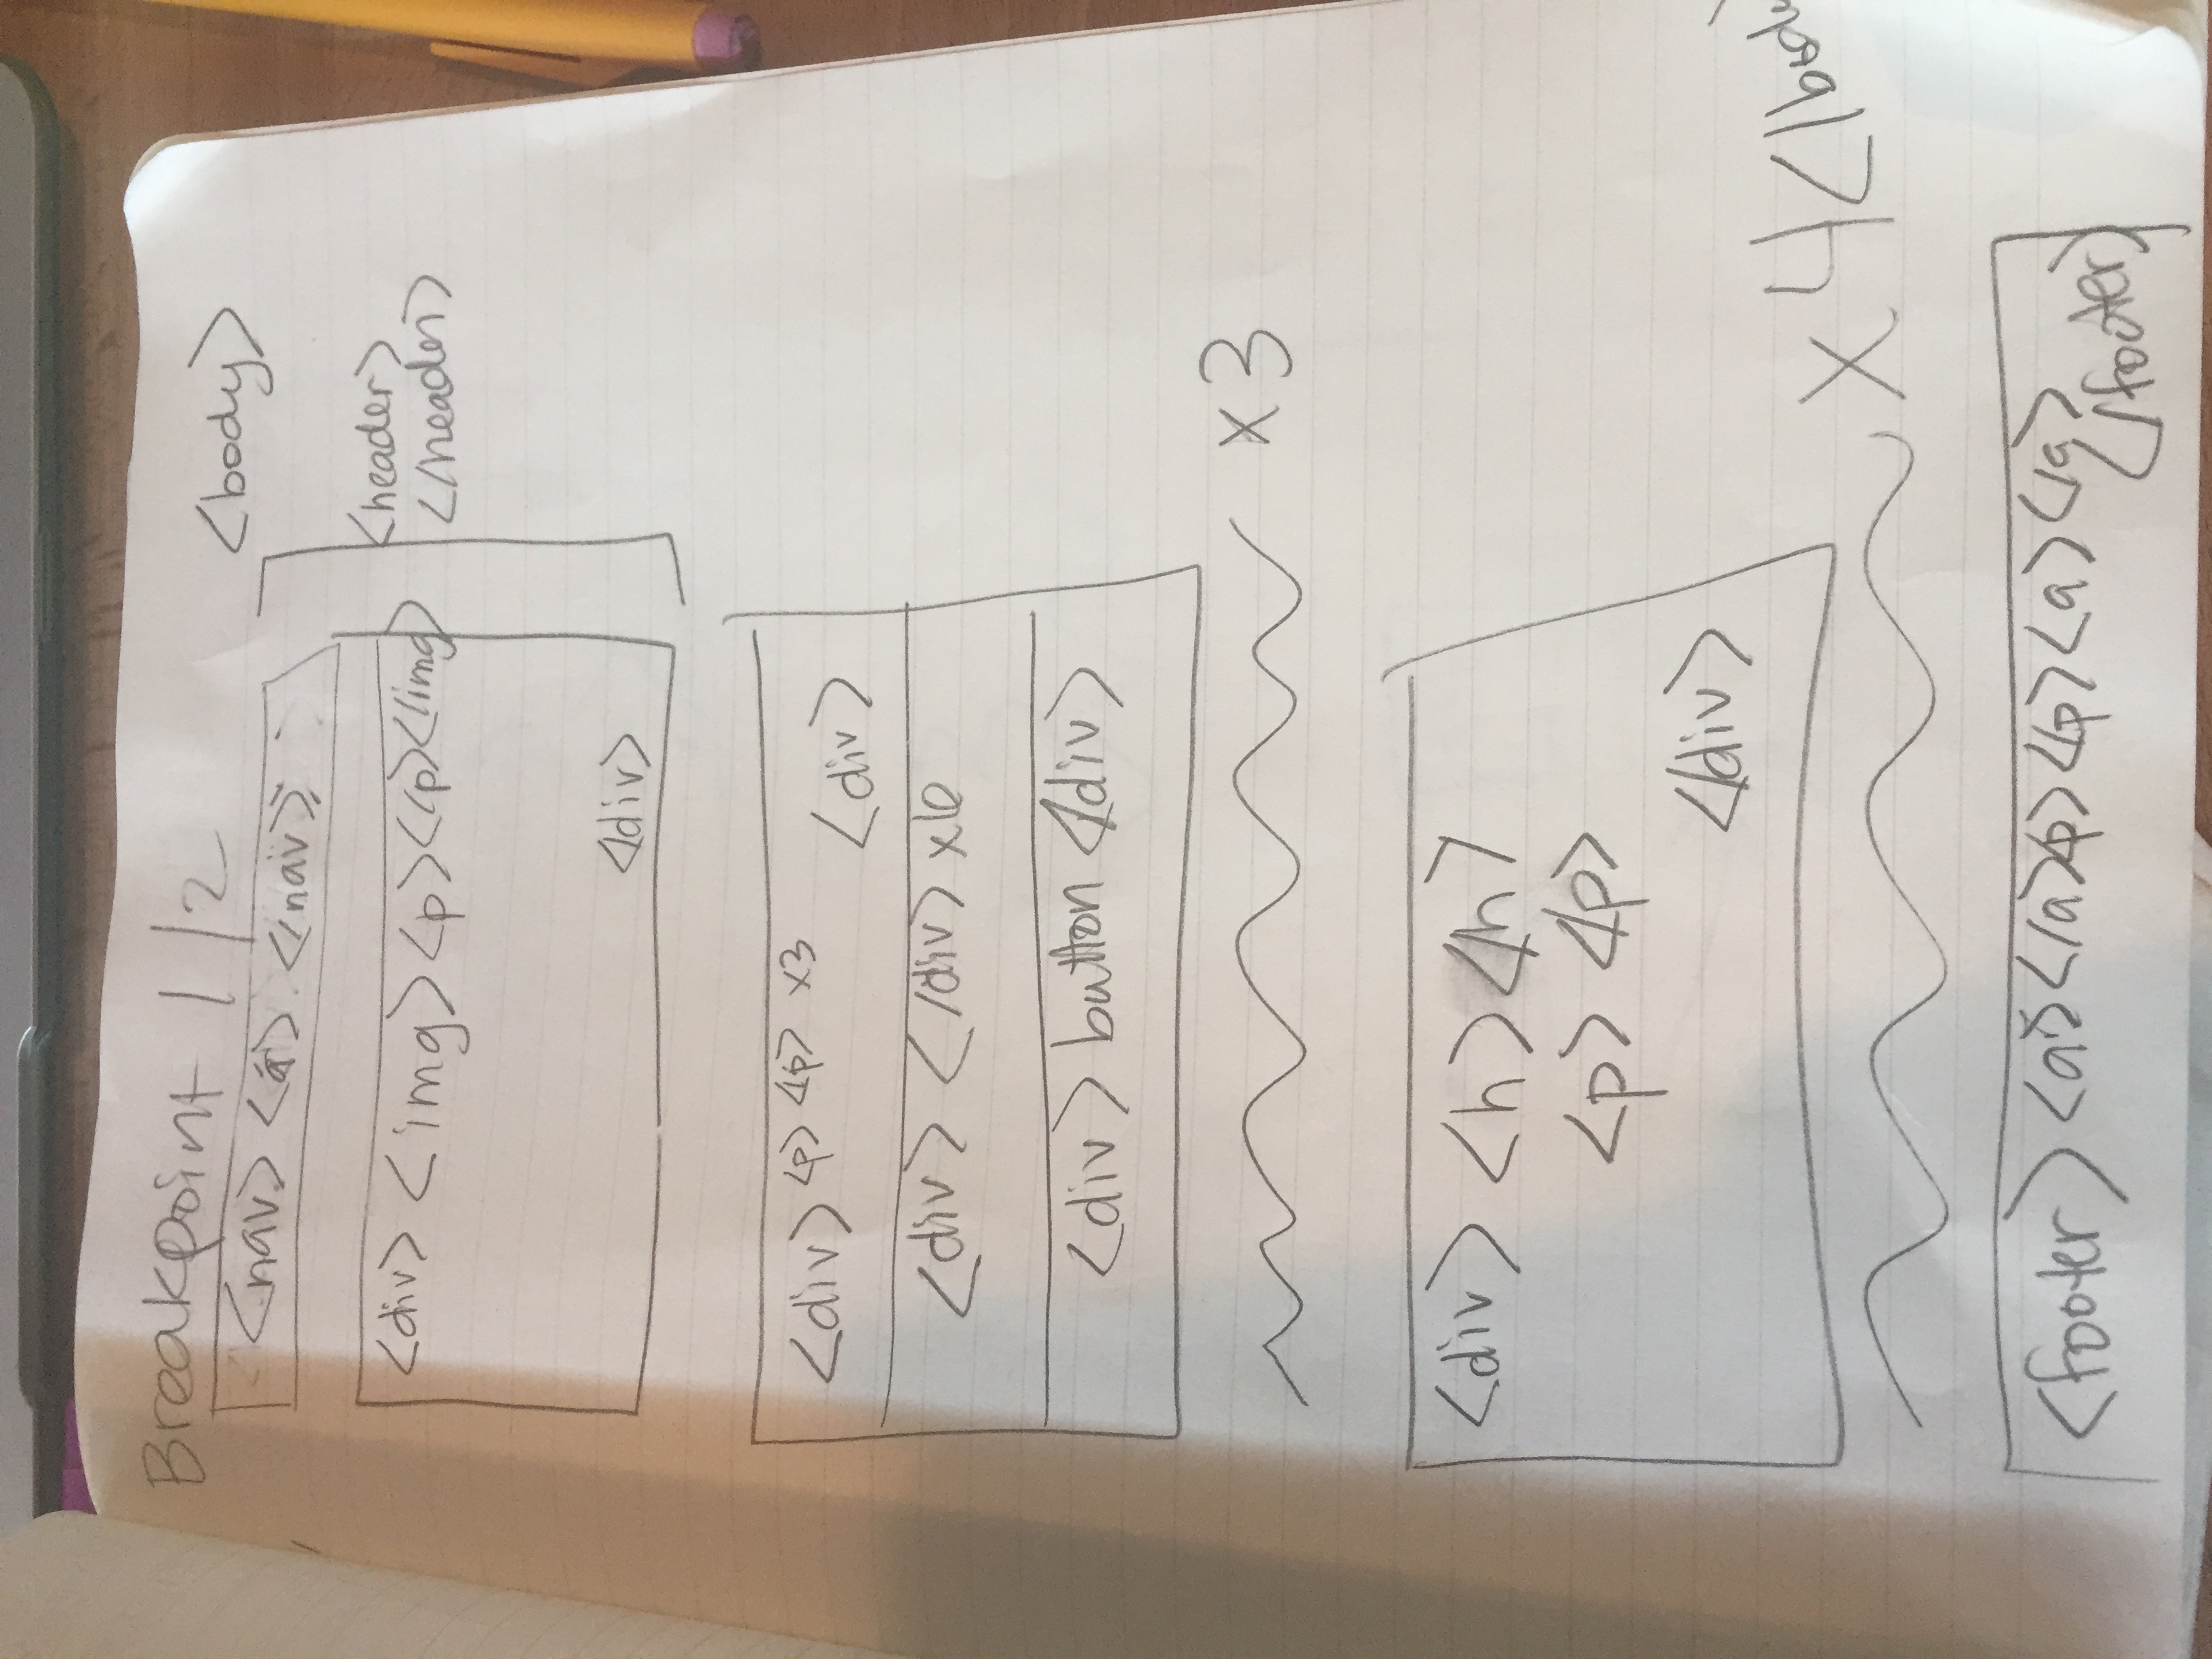 Breakpoint 1/2
<body>
<nav> <a> </nav>
<header>
</header>
<div> <img> <p> </p> </img>
</div>
<div> <p> </p> x3
<div>
<div> </div> x6
<div> button </div>
x3
<div> <h> </h>
<p> </p>
</div>
x4 </body
<footer> <a> </a> <p> </p> <a> </a>
</footer>